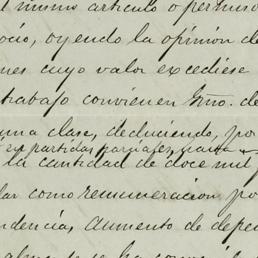 l mismo artículo o permiso
ocio, oyendo la opinión de
nes cuyo valor excediese
trabajo convienen Gmo. de
una clase, deduciendo, po
en partidas parciales, hasta
la cantidad de doce mil
lar como remuneracion, po
ndencia, aumento de depe